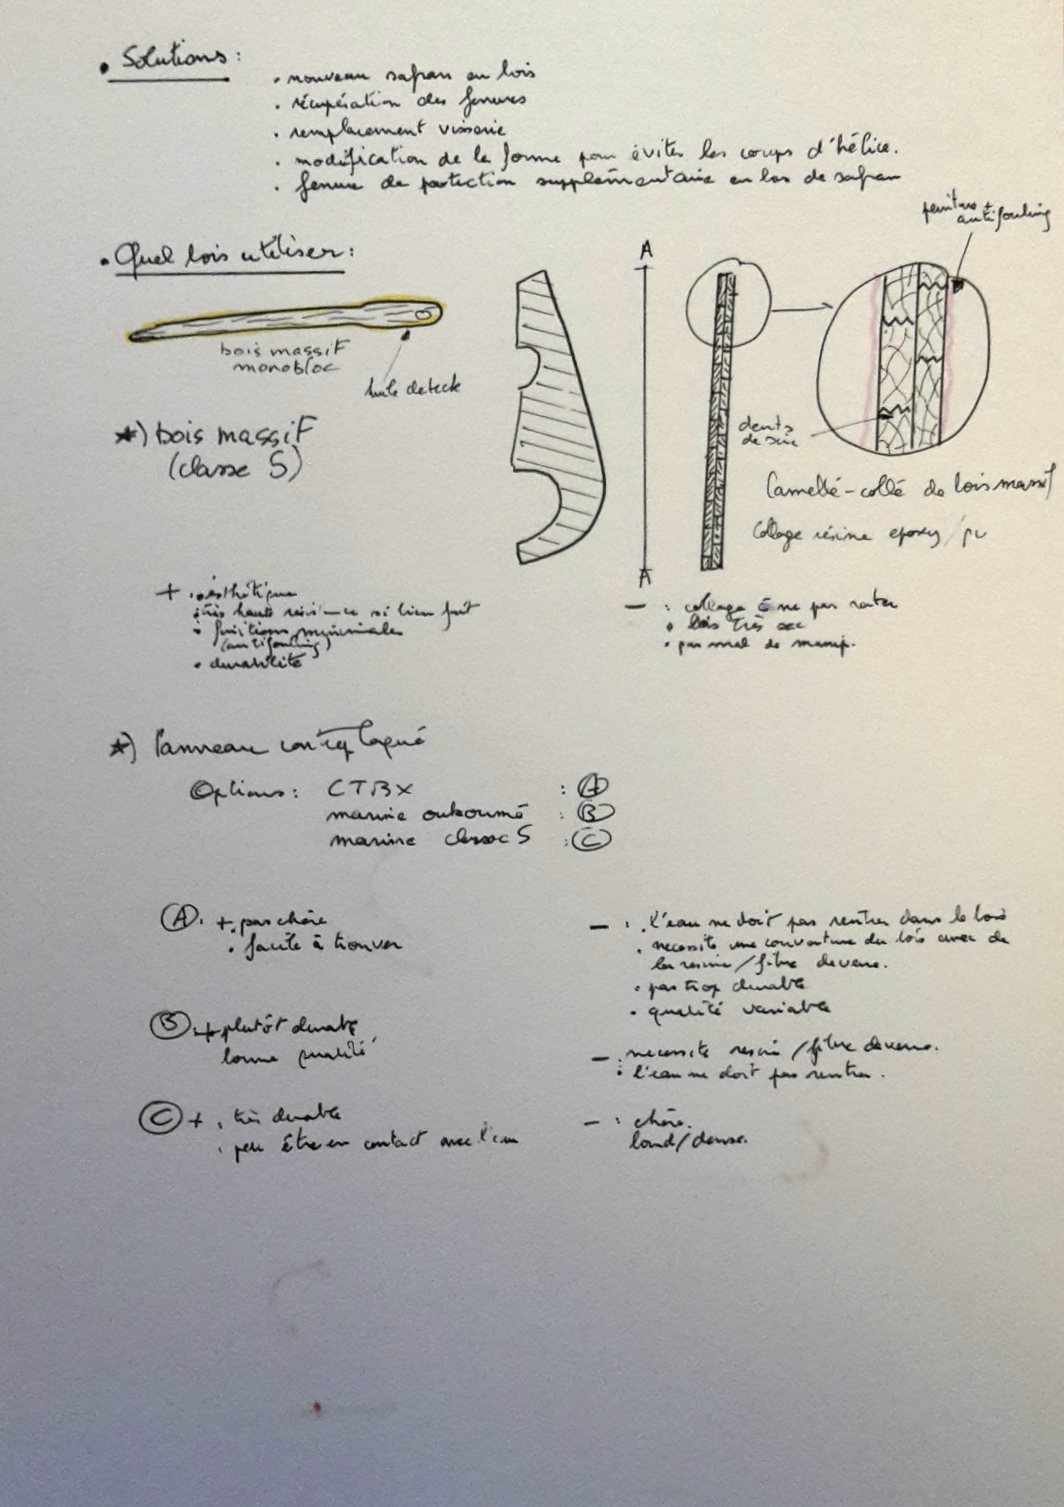 • Solutions :
• nouveau safran en bois
• récupération des ferrures
• remplacement visserie
• modification de la forme pour éviter les coups d'hélice.
• ferrure de protection supplémentaire en bas de safran
peinture +
antifouling
• Quel bois utiliser :
A
bois massif
monobloc
huile de teck
dents
de scie
*) bois massif
(classe 5)
Lamellé-collé de bois massif
Collage résine epoxy/pu
A
+ : esthétique
• très haute résistance si bien fait
• finitions minimales
(antifouling)
• durabilité
- : collage à ne pas rater
• bois très sec
• pas mal de manip.
*) Panneau contreplaqué
Options : CTBX : A
marine oukoumé : B
marine classe 5 : C
A : + pas chère
• facile à trouver
- : • L'eau ne doit pas rentrer dans le bois
• necessite une couverture du bois avec de
la resine / fibre de verre.
• pas trop durable
• qualité variable
B : + plutôt durable
bonne qualité
- : necessite resine / fibre de verre.
• l'eau ne doit pas rentrer.
C + : très durable
• peu être en contact avec l'eau
- : chère.
lourd/dense.